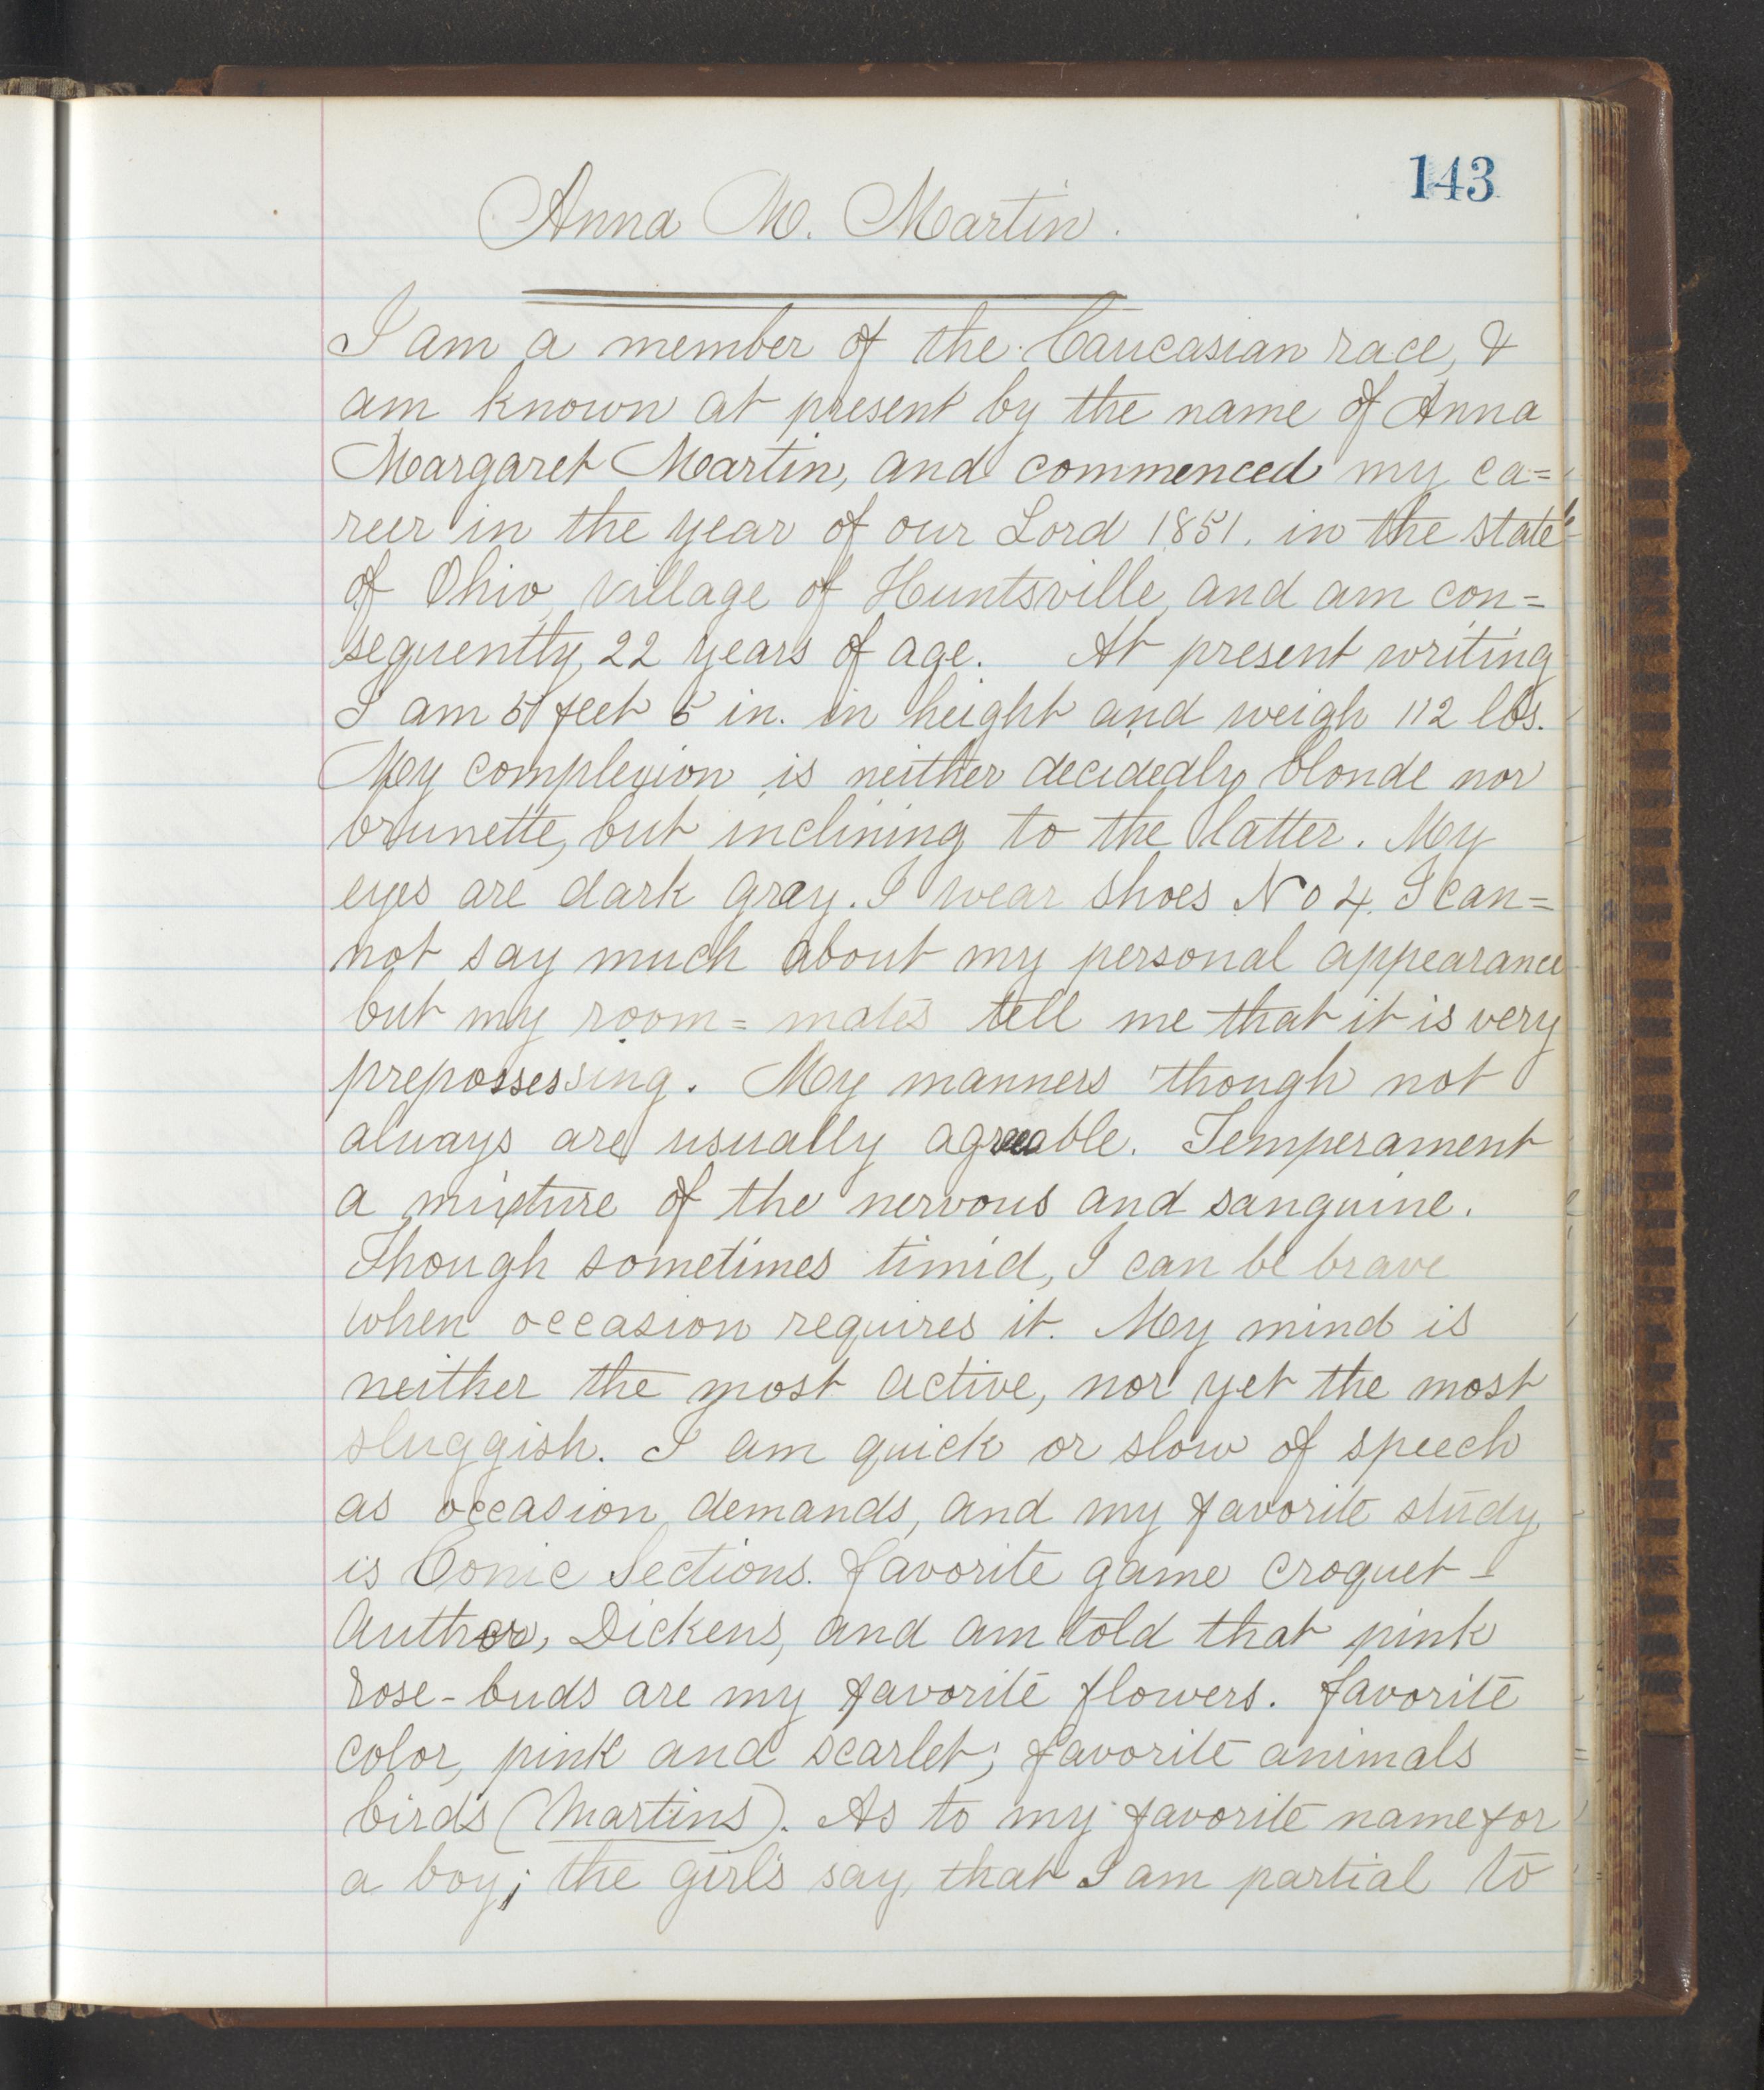 143
Anna M. Martin.
I am a member of the Caucasian race, &
am known at present by the name of Anna
Margaret Martin, and commenced my ca=
reer in the year of our Lord 1851. in the state
of Ohio, village of Huntsville, and am con=
sequently, 22 years of age. At present writing
I am 5 feet 5 in. in height and weigh 112 lbs.
My complexion is neither decidedly blonde nor
brunette, but inclining to the latter. My
eyes are dark gray. I wear shoes No 4. I can=
not say much about my personal appearance
but my room=mates tell me that it is very
prepossessing. My manners though not
always are usually agreeable. Temperament
a mixture of the nervous and sanguine.
Though sometimes timid, I can be brave
when occasion requires it. My mind is
neither the most active, nor yet the most
sluggish. I am quick or slow of speech
as occasion demands, and my favorite study
is Conic Sections. favorite game croquet-
Author, Dickens, and am told that pink
rose-buds are my favorite flowers. favorite
color, pink and scarlet; favorite animals
birds (Martins). As to my favorite name for
a boy; the girls say, that I am partial to